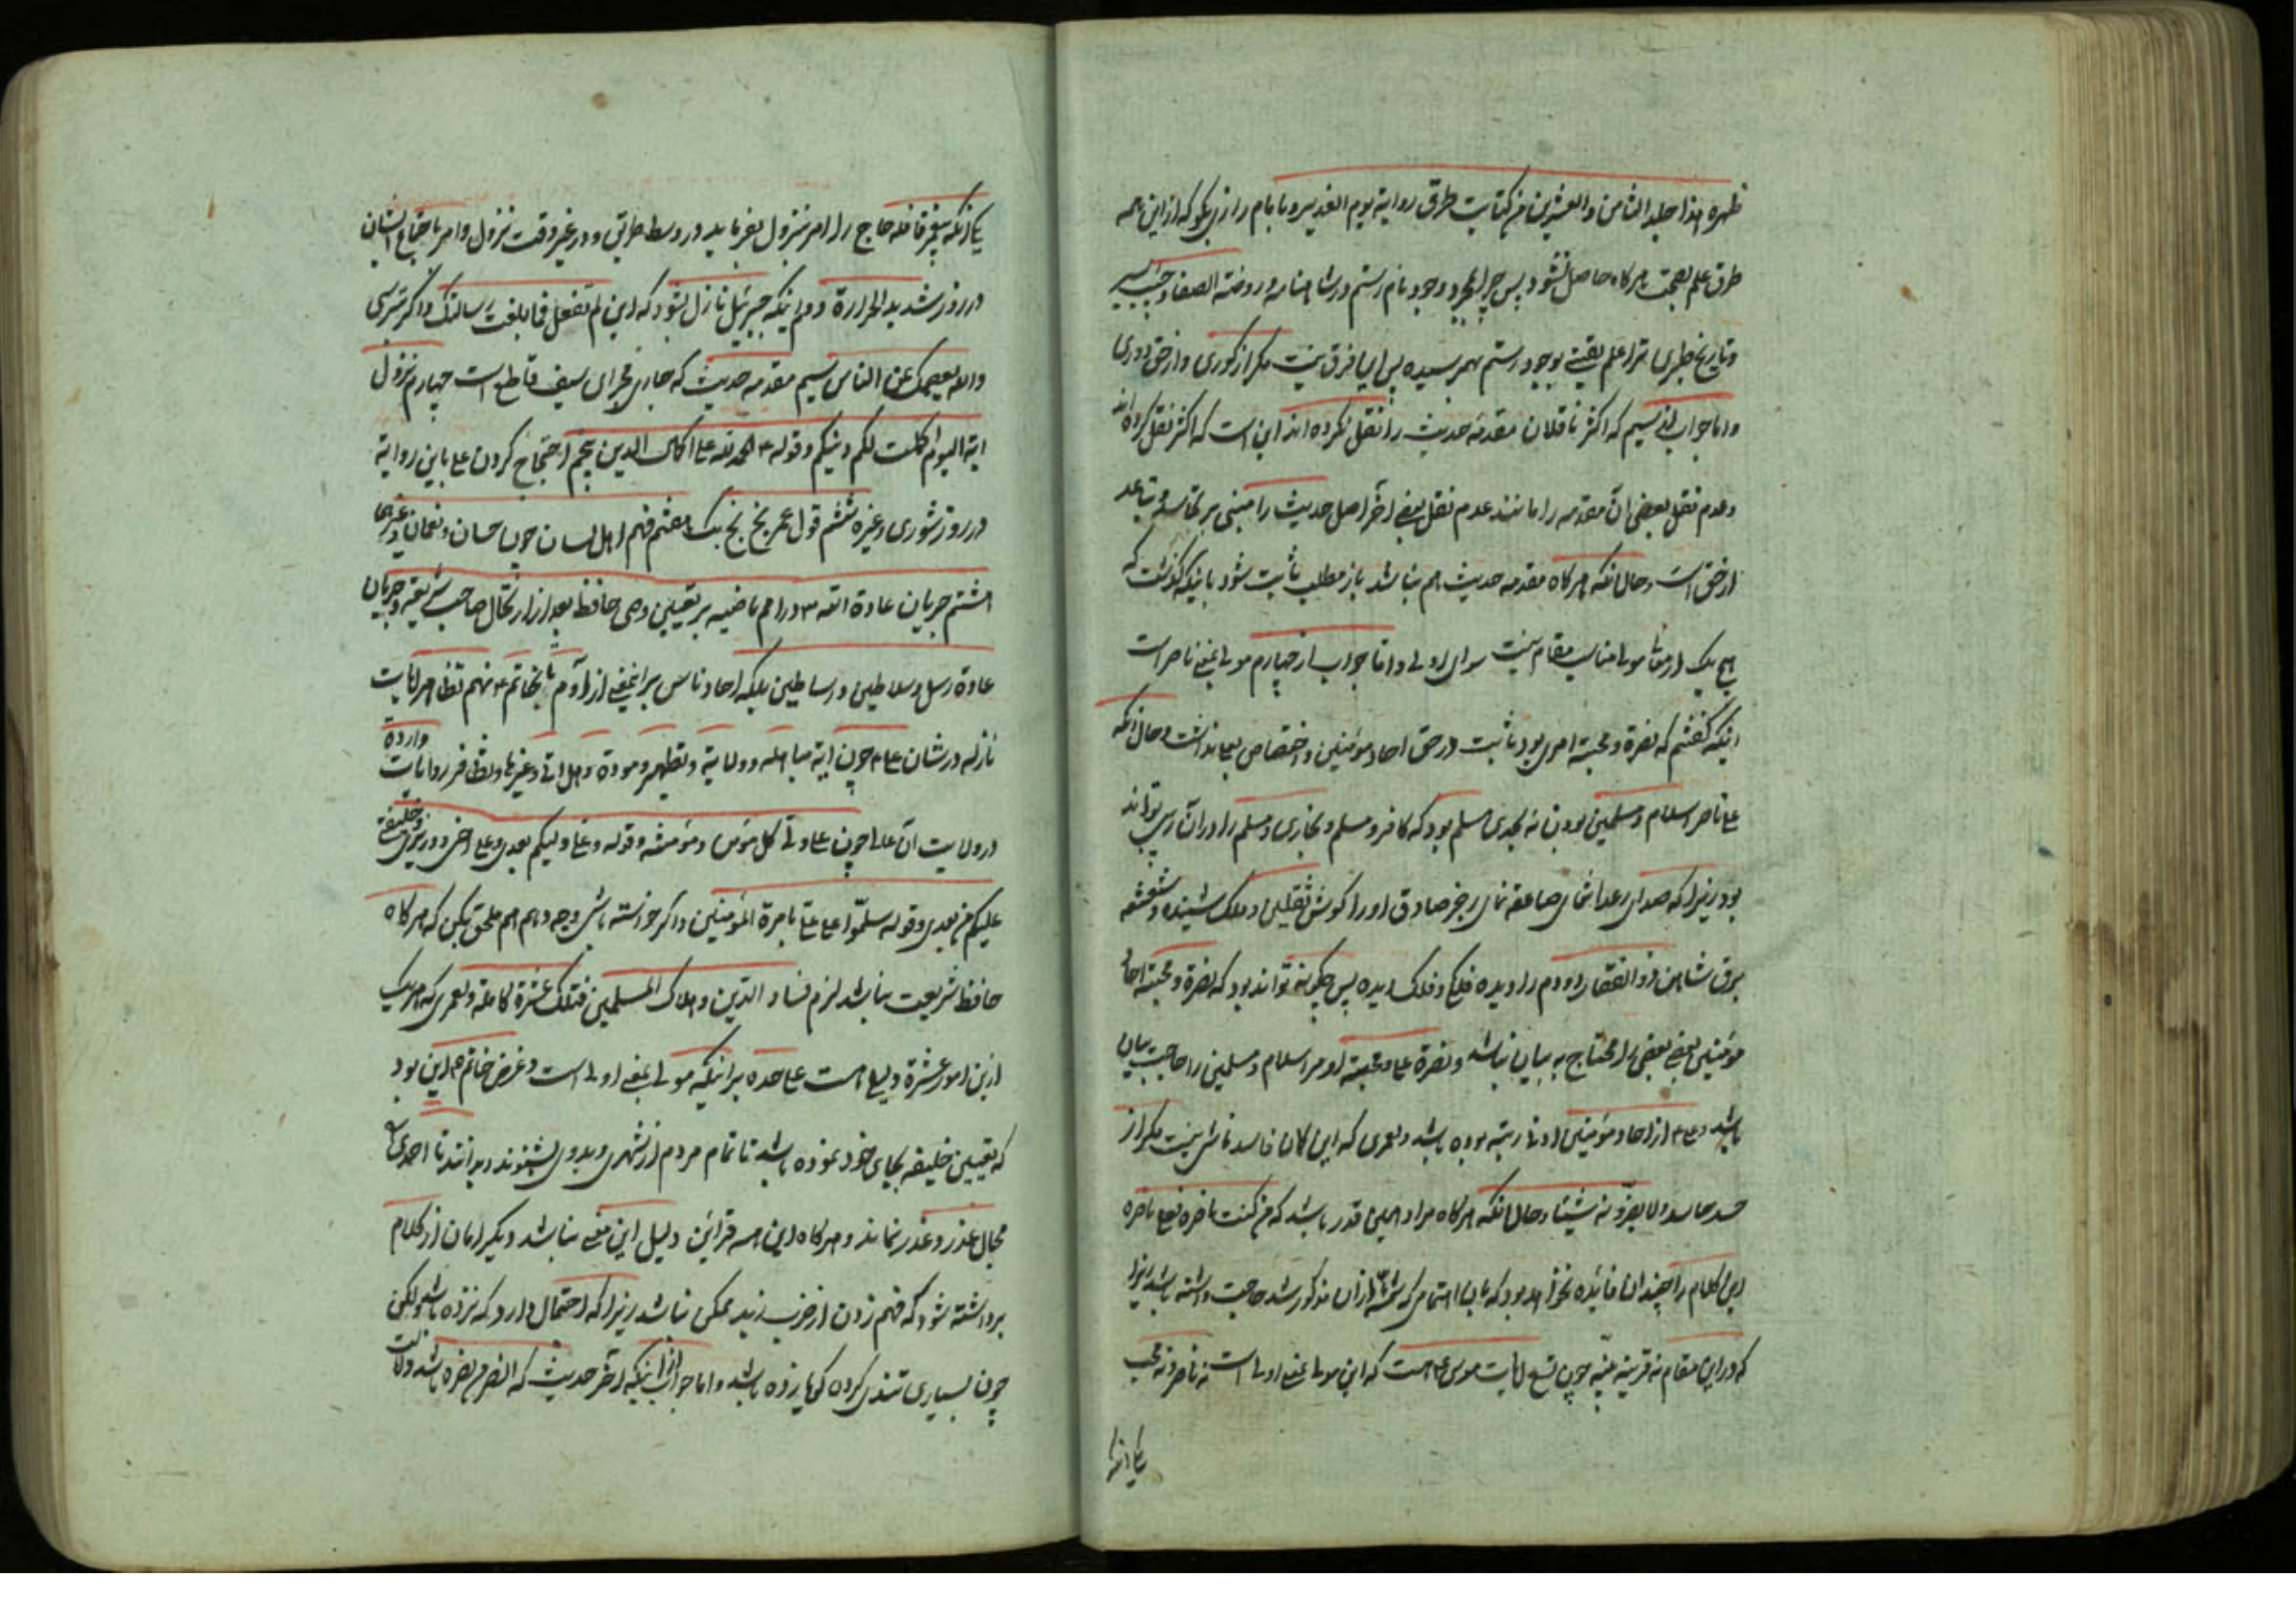 ظهره هذا جلد الثامن والعشرین من کتابت طرق روایة یوم الغدیر و با امام رازی بکو که از این همه
طرق علم بصحت هرکاه حاصل نشود پس چرا بمجرد وجود نام رستم در شاهنامه و روضة الصفا و حبیب السیر
و تاریخ طبری ترا علم یقینی بوجود رستم بهم رسیده پس این فرق نیست مکر از کوری و از حق دوری
و اما جواب از سیم که اکثر ناقلان مقدمه حدیث را نقل نکرده اند این است که اکثر نقل کرده اند
و عدم نقل بعضی آن مقدمه را مانند عدم نقل بعضی آخر اصل حدیث را مبنی بر و تباعد
از حق است و حال آنکه هرکاه مقدمه حدیث هم نباشد باز مطلب ثابت شود باینکه کذشت که
هیچ یک از معانی مولی مناسب مقام نیست سوای اولی و اما جواب از چهارم مولی بمعنی ناصر است
اینکه کفتیم که نصرة و محبة امری بود ثابت در حق احاد مؤمنین و اختصاص بعلی نداشت و حال آنکه
علی ناصر اسلام و مسلمین بودن نه بحدی مسلم بود که کافر و مسلم و بخاری و مسلم را در آن ریبی تواند
بود زیرا که صدای رعد آسای صاعقه نمای زجر صادق او را کوش ثقلین و ملک شنیده و شعشعه
برق شاهین ذو الفقار دو دم را دیده فلکی و فلک دیده پس چکونه تواند بود که نصرة و محبة احاد
مؤمنین بعضی بعضی را محتاج به بیان نباشد و نصرة علی و محبة او مر اسلام و مسلمین را حاجت بیان
باشد و علی ع از احاد مؤمنین ادنی رتبه بوده باشد و لعمری که این کمان فاسد ناشی نیست مکر از
حسد حاسد و لا یضرونه شیئا و حال آنکه هرکاه مراد همین قدر باشد که من کنت ناصره فعلی ناصره
این کلام را چندان فائده نخواهد بود که بآن اهتمامی که شمه از آن مذکور شد حاجت داشته باشد زیرا
که در این مقام نه قرینه بینه چون تسع آیات موسی ع هست که این مولی بمعنی اولی است نه ناصر و نه محب
یکی آنکه
یکی آنکه پیغمبر قافله حاج را امر بنزول بفرماید در وسط طریق و در غیر وقت نزول و امر باجتماع ایشان
در روز شدید الحرارة دویم اینکه جبرئیل نازل شود که ان لم تفعل فما بلغت رسالتک و اکر ترسی
والله یعصمک من الناس سیم مقدمه حدیث که جاری مجرای سیف قاطع است چهارم نزول
ایة الیوم اکملت لکم دینکم و قوله ع الحمد لله علی اکمال الدین پنجم احتجاج کردن علی باین روایة
در روز شوری و غیره ششم قول عمر بخ بخ لک هفتم فهم اهل لسان چون حسان و نعمان و غیرهما
هشتم جریان عادة الله در امم ماضیه بر تعیین وصی حافظ بعد از ارتحال صاحب شریعة و جریان
عادة رسل و سلاطین و اساطین بلکه احاد ناس بر این معنی از آدم تا بخاتم ع نهم تظاهر آیات
نازله در شان علی ع چون ایة مباهله و ولایة و تطهیر و مودة و هل اتی و غیرها و تظافر روایات وارده
در ولایت آن علی چون علی ولی کل مؤمن و مؤمنة و قوله و علی ولیکم بعدی و علی اخی و وزیری و خلیفة
علیکم من بعدی و قوله سلموا علی علی بامرة المؤمنین و اکر خواسته باشی وجه دهم هم ملحق بکن که هرکاه
حافظ شریعت نباشد لزم فساد الدین و هلاک المسلمین فتلک عشرة کاملة و لعمری که هر یک
از این امور عشرة دلیلی است علی حده بر اینکه مولی بمعنی اولی است و غرض خاتم ص این بود
که تعیین خلیفه بجای خود نموده باشد تا تمام مردم از شهری و بدوی بشنوند و بدانند تا احدی را
مجال عذر و غدر نماند و هرکاه این همه قرائن دلیل این معنی نباشد دیکر امان از کلام
برداشته شود که فهم زدن از ضرب زید ممکن نباشد زیرا که احتمال دارد که نزده باشد ولکن
چون بسیاری تندی کرده کویا زده باشد و اما جواب از اینکه آخر حدیث که انصر من نصره باشد دلالت